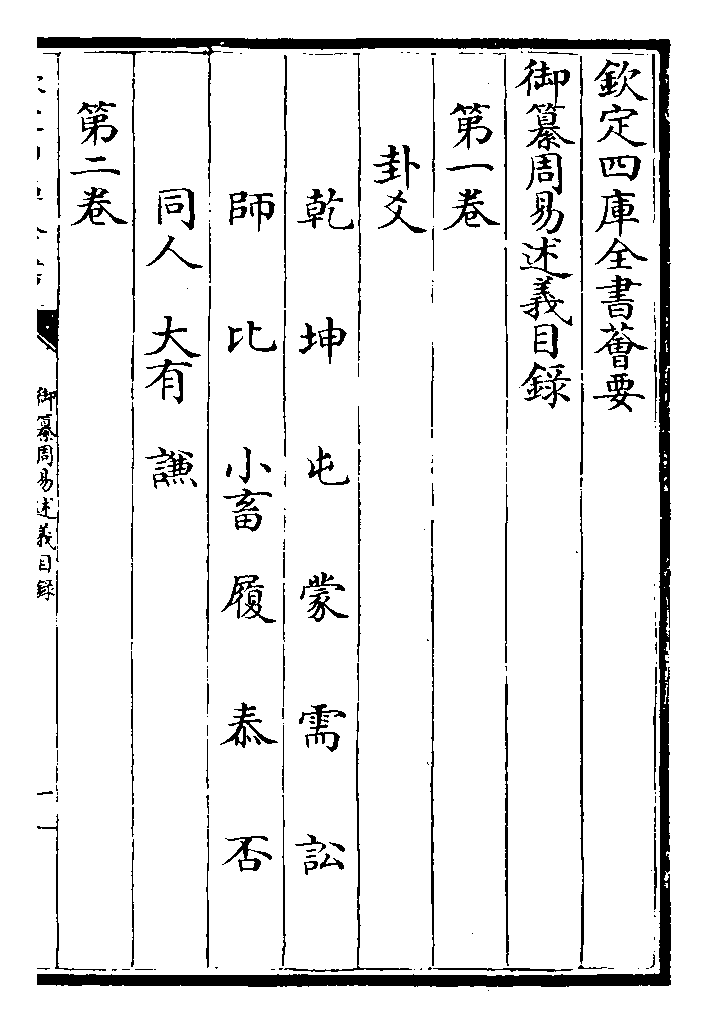 欽定四庫全書薈要
御纂周易述義目錄
第一卷
卦爻
乾 坤 屯 蒙 需 訟
師 比 小畜 履 泰 否
同人 大有 謙
第二卷
御纂周易述義目錄
一